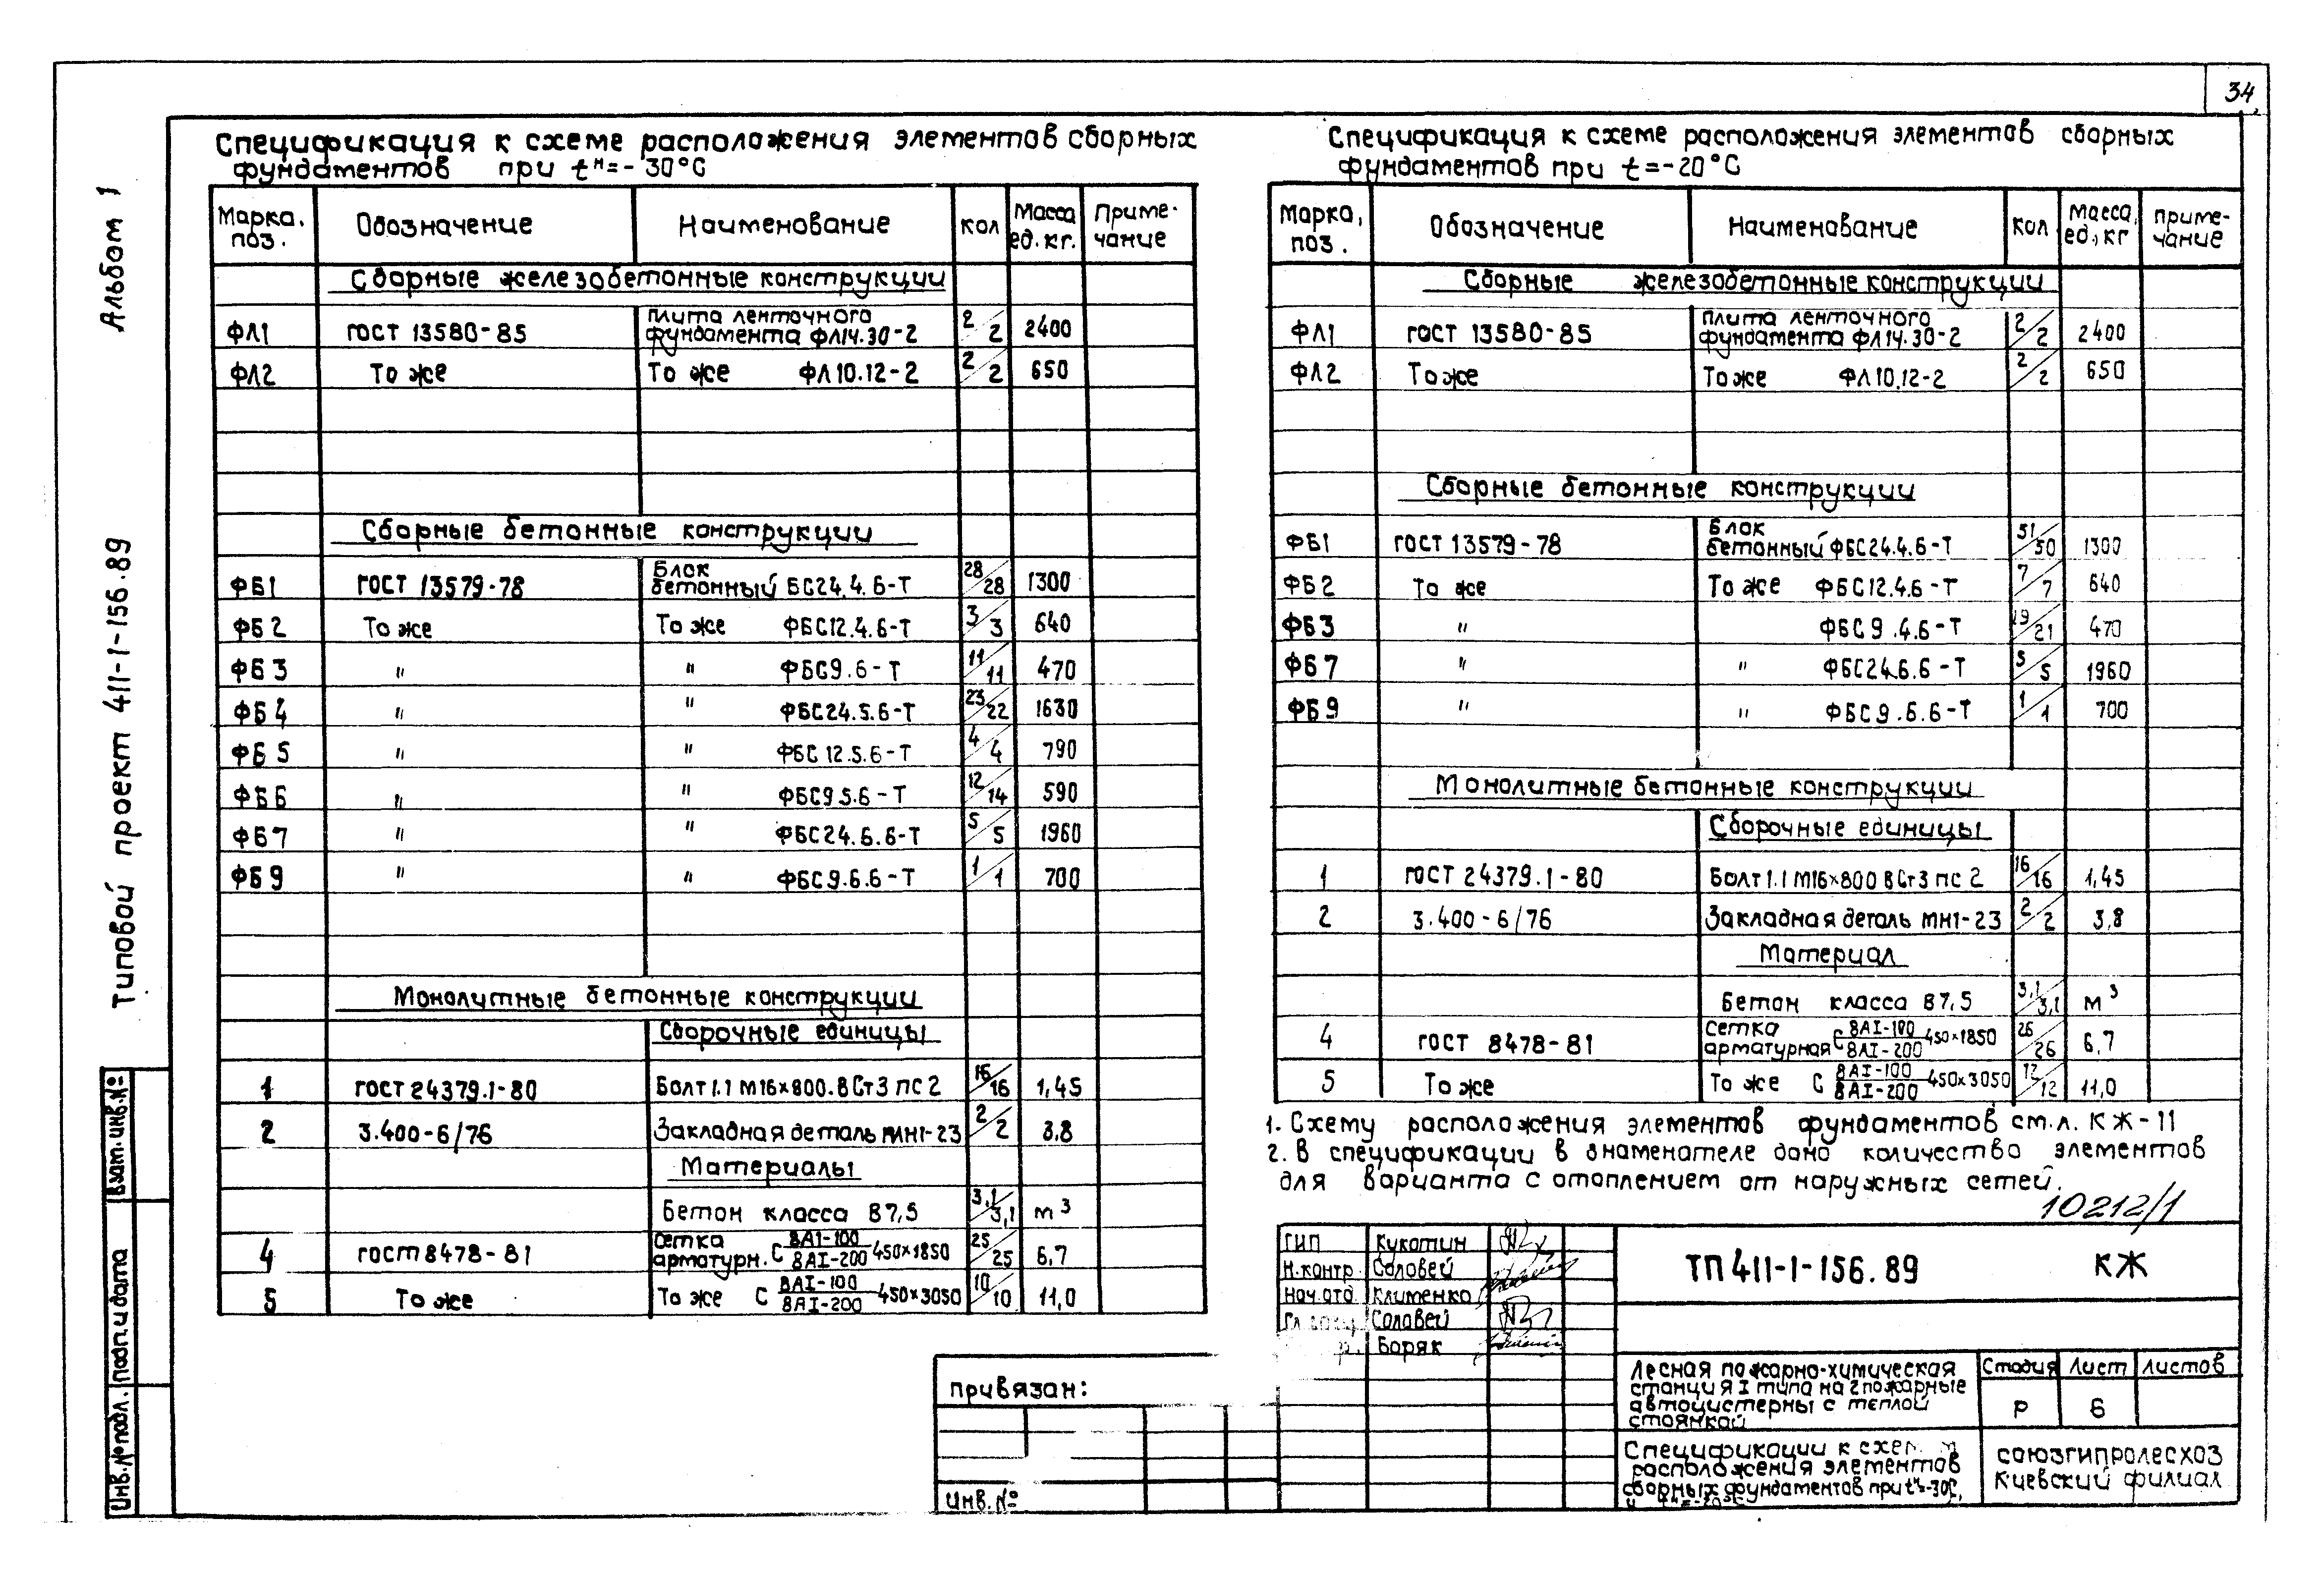 34
Альбом 1
Типовой проект 411-1-156.89
Взам.инв.№
Подп.и дата
Инв.№подл.
Спецификация к схеме расположения элементов сборных
фундаментов при tн=-30°С
Марка, поз. Обозначение Наименование Кол Масса ед.кг. Приме-чание
Сборные железобетонные конструкции
ФЛ1 ГОСТ 13580-85 Плита ленточного фундамента ФЛ14.30-2 2/2 2400
ФЛ2 То же То же ФЛ10.12-2 2/2 650
Сборные бетонные конструкции
ФБ1 ГОСТ 13579-78 Блок бетонный БС24.4.6-Т 28/28 1300
ФБ2 То же То же ФБС12.4.6-Т 3/3 640
ФБ3 " " ФБС9.6-Т 11/11 470
ФБ4 " " ФБС24.5.6-Т 23/22 1630
ФБ5 " " ФБС12.5.6-Т 4/4 790
ФБ6 " " ФБС9 5.6-Т 12/14 590
ФБ7 " " ФБС24.6.6-Т 5/5 1960
ФБ9 " " ФБС9.6.6-Т 1/1 700
Монолитные бетонные конструкции
Сборочные единицы
1 ГОСТ 24379.1-80 Болт 1.1 М16×800.ВСт3 пс 2 16/16 1,45
2 3.400-6/76 Закладная деталь МН1-23 2/2 3,8
Материалы
Бетон класса В7,5 3,1/3,1 м3
4 ГОСТ 8478-81 Сетка арматурн. С 8АI-100/8АI-200 450×1850 25/25 6,7
5 То же То же С 8АI-100/8АI-200 450×3050 10/10 11,0
Спецификация к схеме расположения элементов сборных
фундаментов при t=-20°С
Марка, поз. Обозначение Наименование Кол Масса, ед.,кг Приме-чание
Сборные железобетонные конструкции
ФЛ1 ГОСТ 13580-85 Плита ленточного фундамента ФЛ14.30-2 2/2 2400
ФЛ2 То же То же ФЛ10.12-2 2/2 650
Сборные бетонные конструкции
ФБ1 ГОСТ 13579-78 Блок бетонный ФБС24.4.6-Т 51/50 1300
ФБ2 То же То же ФБС12.4.6-Т 7/7 640
ФБ3 " ФБС9.4.6-Т 19/21 470
ФБ7 " " ФБС24.6.6-Т 5/5 1960
ФБ9 " " ФБС9.6.6-Т 1/1 700
Монолитные бетонные конструкции
Сборочные единицы
1 ГОСТ 24379.1-80 Болт 1.1 М16×800 ВСт3 пс 2 16/16 1,45
2 3.400-6/76 Закладная деталь МН1-23 2/2 3,8
Материал
Бетон класса В7,5 3,1/3,1 м3
4 ГОСТ 8478-81 Сетка арматурная С 8АI-100/8АI-200 450×1850 26/26 6,7
5 То же То же С 8АI-100/8АI-200 450×3050 12/12 11,0
1. Схему расположения элементов фундаментов см.л. КЖ-11
2. В спецификации в знаменателе дано количество элементов
для варианта с отоплением от наружных сетей.
10212/1
ГИП Кукотин
Н.контр. Соловей
Нач.отд. Клименко
Соловей
Боряк
ТП 411-1-156.89 КЖ
Лесная пожарно-химическая
станция I типа на 2 пожарные
автоцистерны с теплой
стоянкой
Стадия Лист Листов
Р 6
Спецификации к
расположения элементов
сборных фундаментов при tн=-30С,
Союзгипролесхоз
Киевский филиал
Привязан:
Инв.№